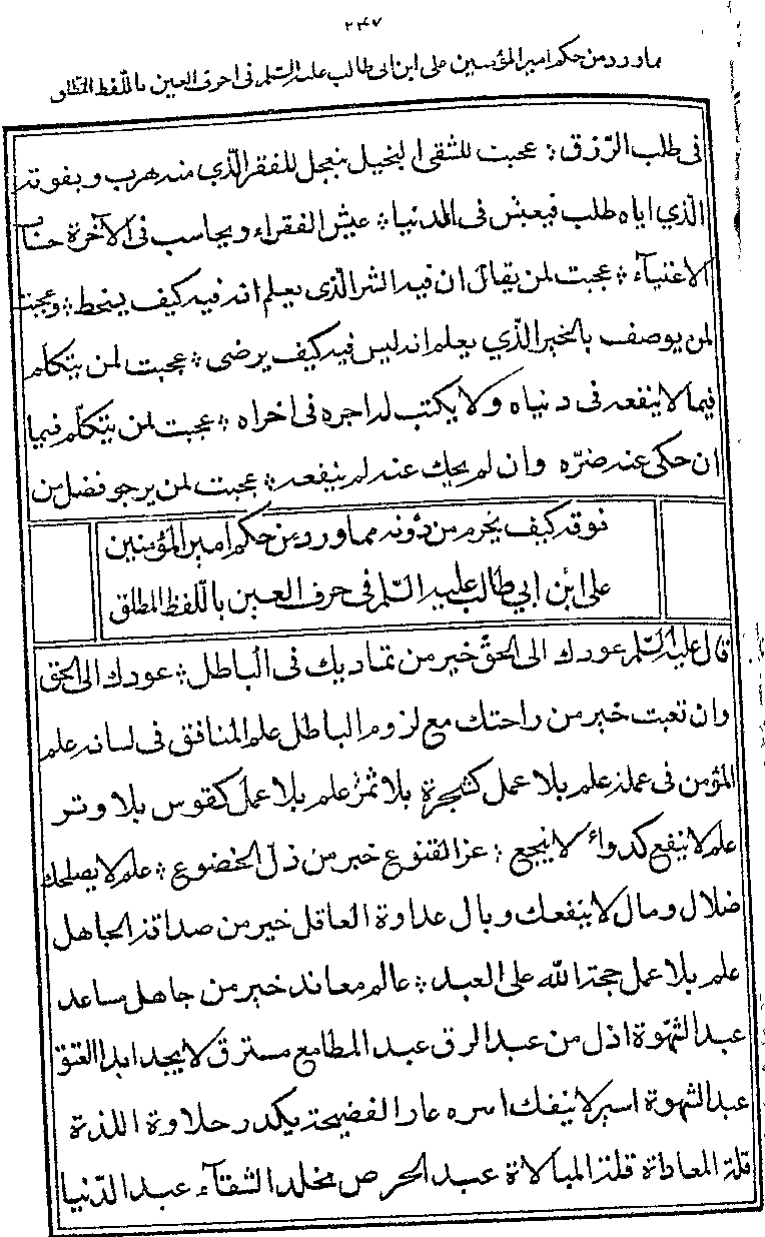 ٢٤٧
مما ورد من حكم امير المؤمنين على ابن ابى طالب عليه السّلم فى احرف العين باللّفظ المطلق
فى طلب الرّزق ؛ عجبت للشقى البخيل يتعجل للفقر الّذي منه هرب ويفوته
الّذي اياه طلب فيعيش فى الدنيا ؛ عيش الفقراء ويحاسب فى الآخرة حساب
الاغنيآء ؛ عجبت لمن يقال ان فيه الشر الّذى يعلم انه فيه كيف يسخط ؛ وعجبت
لمن يوصف بالخير الّذي يعلم انه ليس فيه كيف يرضى ؛ عجبت لمن يتكلّم
فيما لا ينفعه فى دنياه ولا يكتب له اجره فى اخراه ؛ عجبت لمن يتكلّم فيما
ان حكى عنه ضرّه وان لم يحك عنه لم ينفعه ؛ عجبت لمن يرجو فضل من
فوقه كيف يحرم من دُونه مما ورد من حكم امير المؤمنين
على ابن ابي طالب عليه السّلم فى حرف العين باللّفظ المطلق
قال عليه السّلم عودك الى الحقّ خير من تماديك فى الباطل ؛ عودك الى الحق
وان تعبت خير من راحتك مع لزوم الباطل علم المنافق فى لسانه علم
المؤمن فى عمله علم بلا عمل كشجرة بلا ثمر علم بلا عمل كقوس بلا وتر
علم لا ينفع كدواء لا ينجع ؛ عز القنوع خير من ذل الخضوع ؛ علم لا يصلحك
ضلال ومال لا ينفعك وبال عداوة العاقل خير من صداقة الجاهل
علم بلا عمل حجة الله على العبد ؛ عالم معاند خير من جاهل مساعد
عبد الشهوة اذل من عبد الرق عبد المطامع مسترق لا يجد ابدا العتق
عبد الشهوة اسير لا ينفك اسره عار الفضيحة يكدر حلاوة اللذة
قلة المعاداة قلة المبالاة عبد الحرص مخلد الشقآء عبد الدّنيا